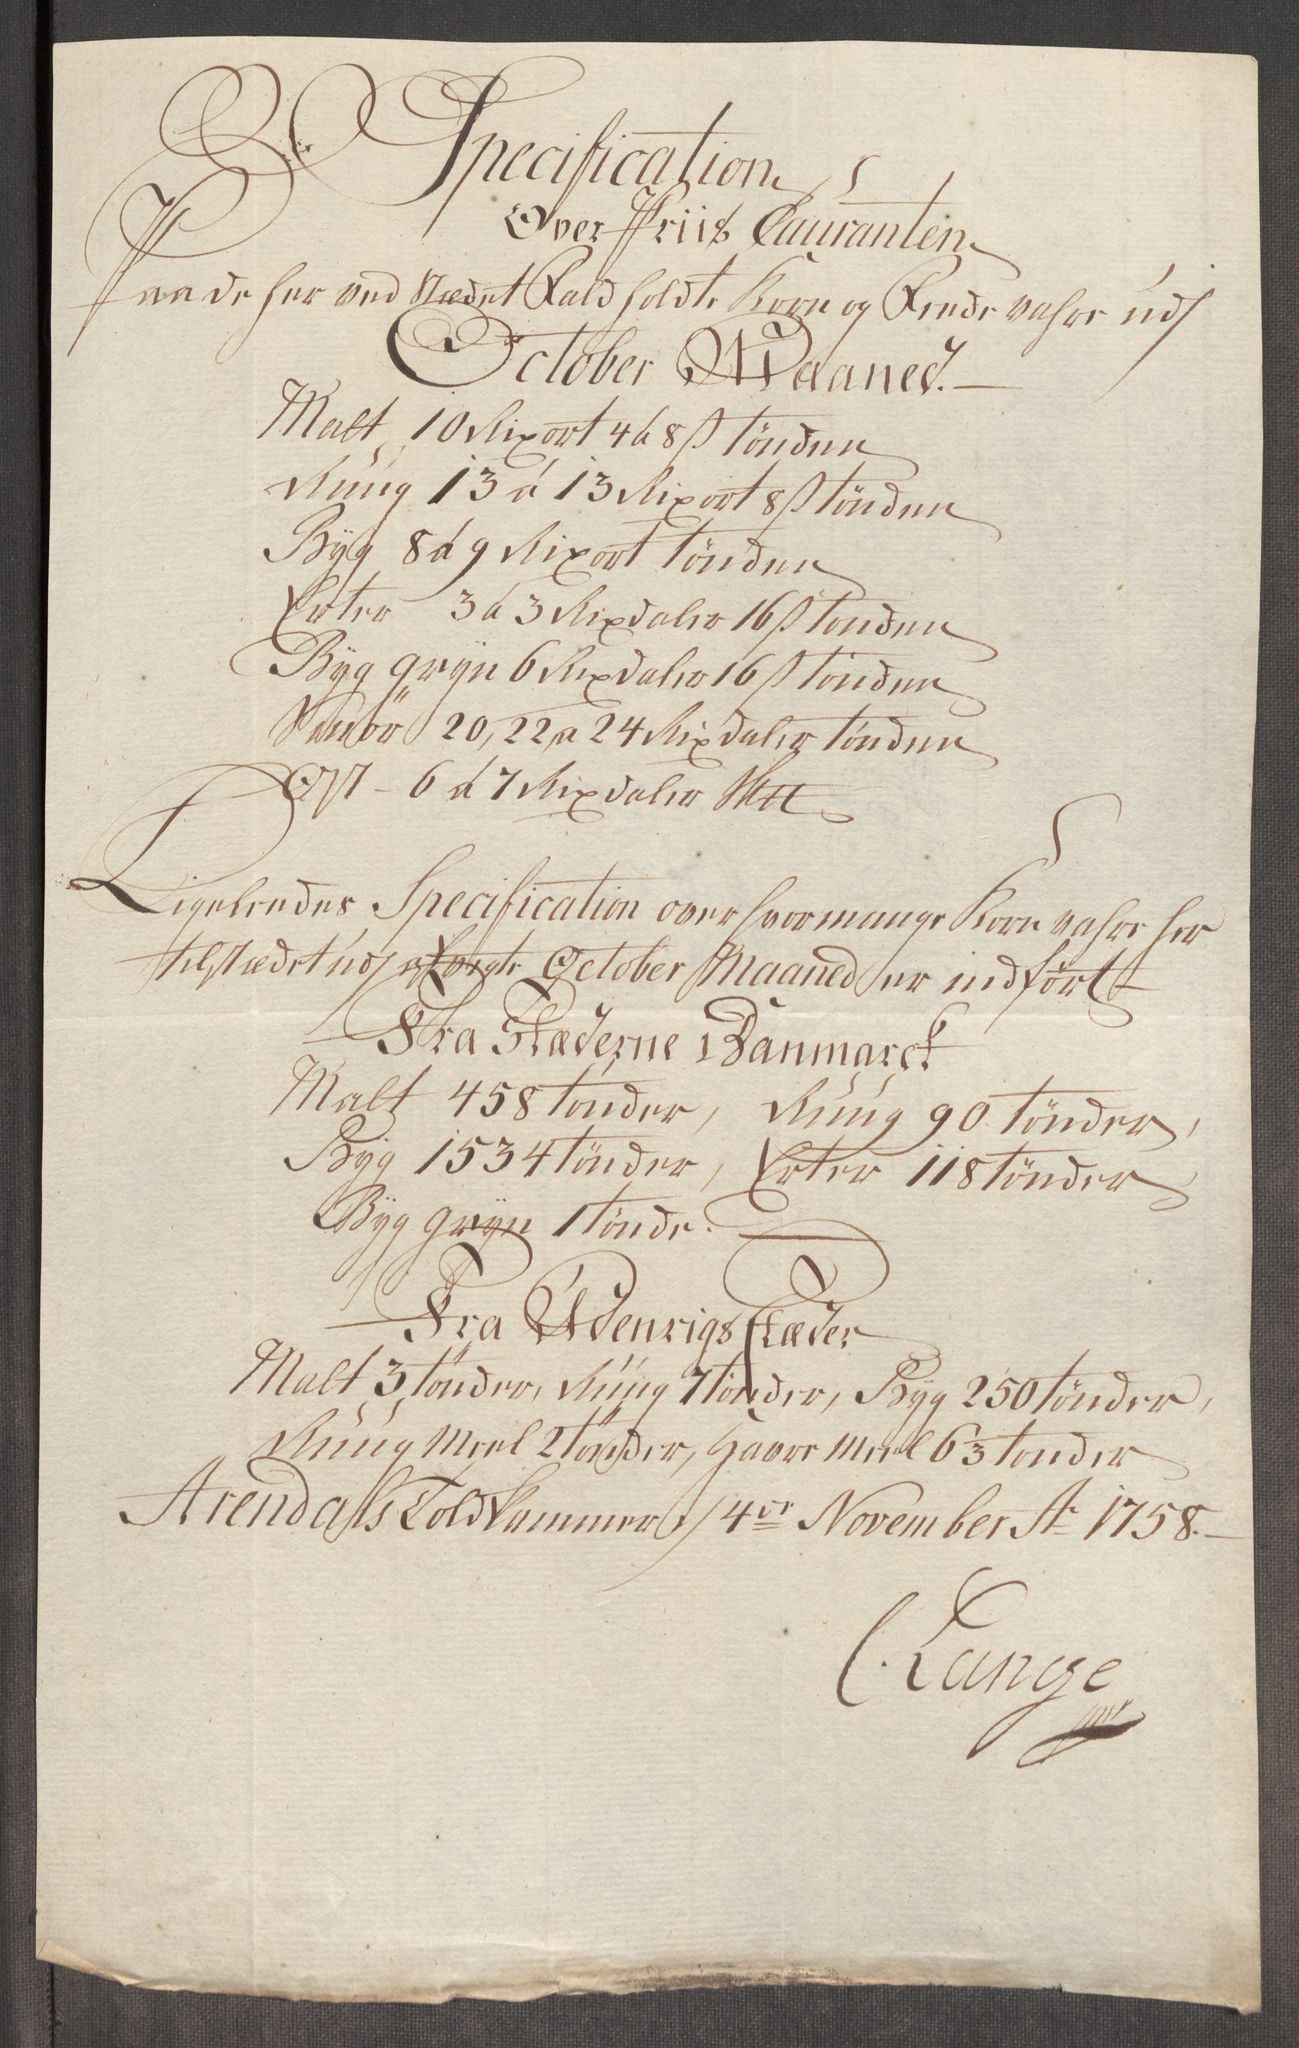 Specification
Over Priis Couranten
Paa de her ved Stædet Fald holdte Korn og Fede vahre udj
October Maaned.
Malt 10 Rixort 4 á 8 ß tönden
Rúúg 13 á 13 Rixort 8 ß tönden
Byg 8 á 9 Rixort tönden
Erter 3 á 3 Rixdaler 16 ß tönden
Byg gryn 6 Rixdaler 16 ß tönden
Smör 20, 22 a 24 Rixdaler tönden
Ost 6 á 7 Rixdaler
Ligeleedes Specification over hvor mange Korn vahre her
til Stædet udj October Maaned er indfört
Fra Stæderne i Danmarck
Malt 458 tönder, Rúúg 90 tönder,
Byg 1534 tönder, Erter 118 tönder
Byg gryn 1 tönde.
Fra Udenrigs Stæder
Malt 3 tönder, Rúúg 7 tönder, Byg 250 tönder,
Rúúg Meel 2 tönder, Havre Meel 63 tönder
Arendahls Told Kammer 4er November Ao 1758.
C. Lange